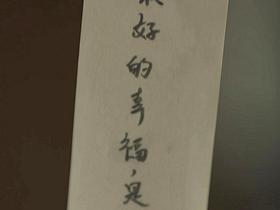 好的幸福,是